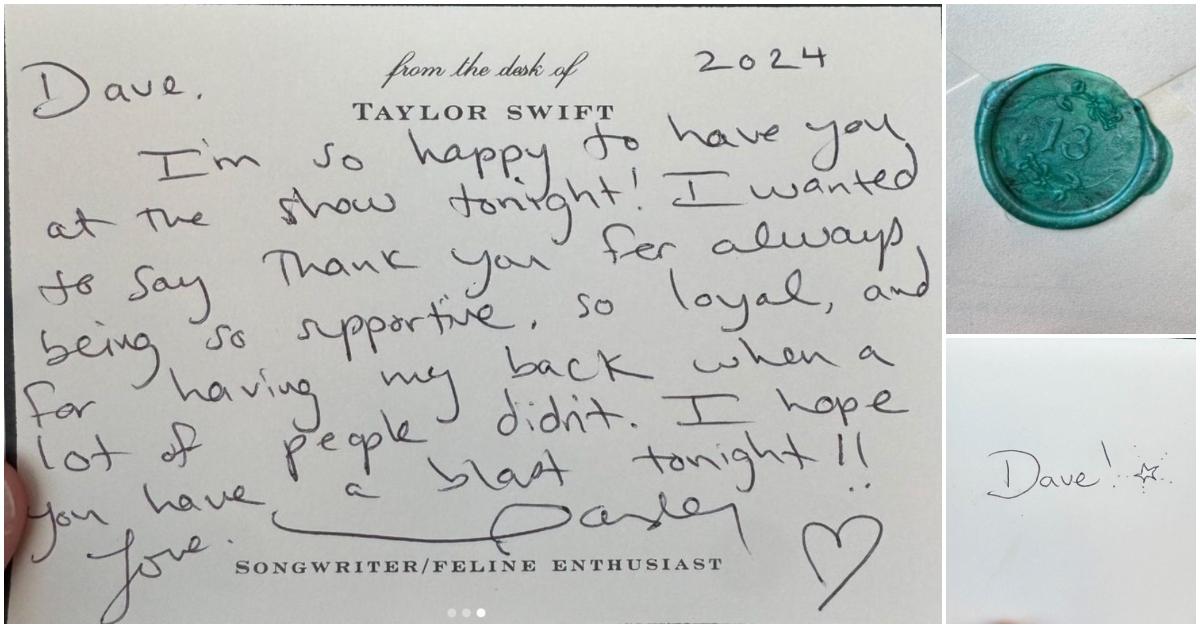 from the desk of
TAYLOR SWIFT
2024
Dave,
I'm so happy to have you
at the show tonight! I wanted
to say thank you for always
being so supportive, so loyal, and
for having my back when a
lot of people didn't. I hope
you have a blast tonight!!
Love,
Taylor
SONGWRITER/FELINE ENTHUSIAST
13
Dave!